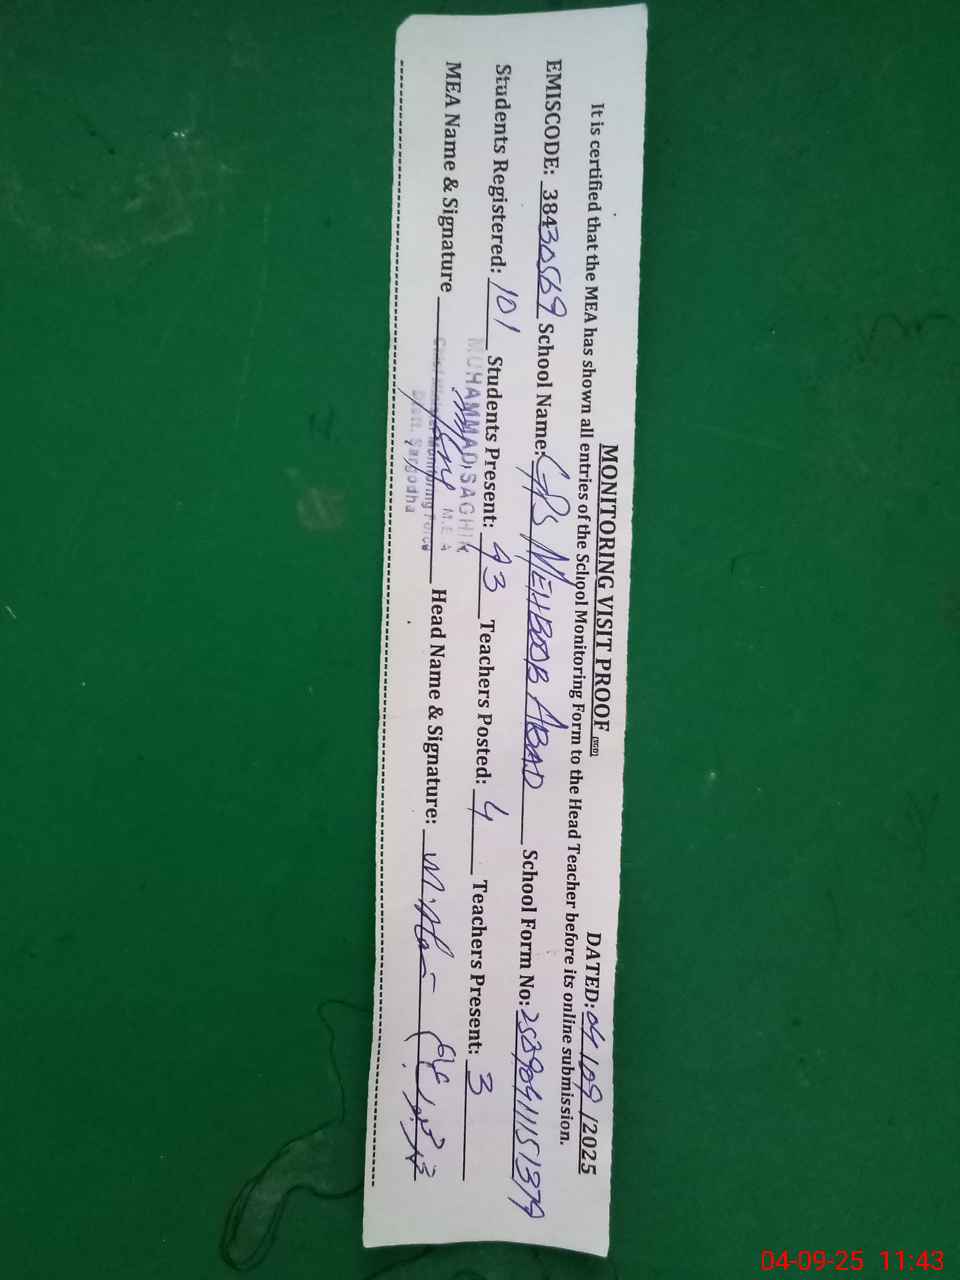 MONITORING VISIT PROOF
DATED: 04/09/2025
It is certified that the MEA has shown all entries of the School Monitoring Form to the Head Teacher before its online submission.
EMISCODE: 38430569 School Name: GPS MEHBOOB ABAD School Form No:
Students Registered: 101 Students Present: 93 Teachers Posted: 4 Teachers Present: 3
MUHAMMAD SAGHIR
M.E.A
MEA Name & Signature Head Name & Signature:
Monitoring Force
Distt. Sargodha
04-09-25 11:43